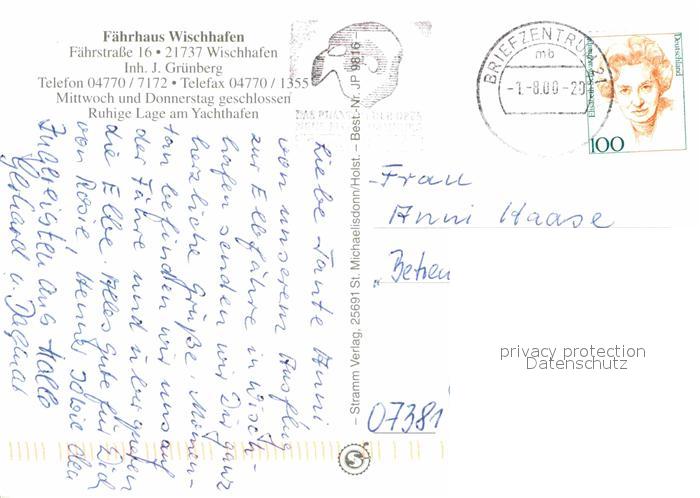 Fährhaus Wischhafen
Fährstraße 16 • 21737 Wischhafen
Inh. J. Grünberg
Telefon 04770 / 7172 • Telefax 04770 / 1355
Mittwoch und Donnerstag geschlossen
Ruhige Lage am Yachthafen
Liebe Tante Anni
von unserem Ausflug
zur Elbfähre in Wisch-
hafen senden wir Dir ganz
herzliche Grüße. Momen-
tan befinden wir uns auf
der Fähre und überqueren
die Elbe. Alles gute für Dich
von Rosie, Henner sowie den
Angereisten aus Halle
Gerhard u. Dagmar
– Stramm Verlag, 25691 St. Michaelisdonn/Holst. – Best.-Nr. JP 9816 –
BRIEFZENTRUM 21
mb
-1.-8.00-20
Deutschland
100
Frau
Anni Haase
07381
privacy protection
Datenschutz
S